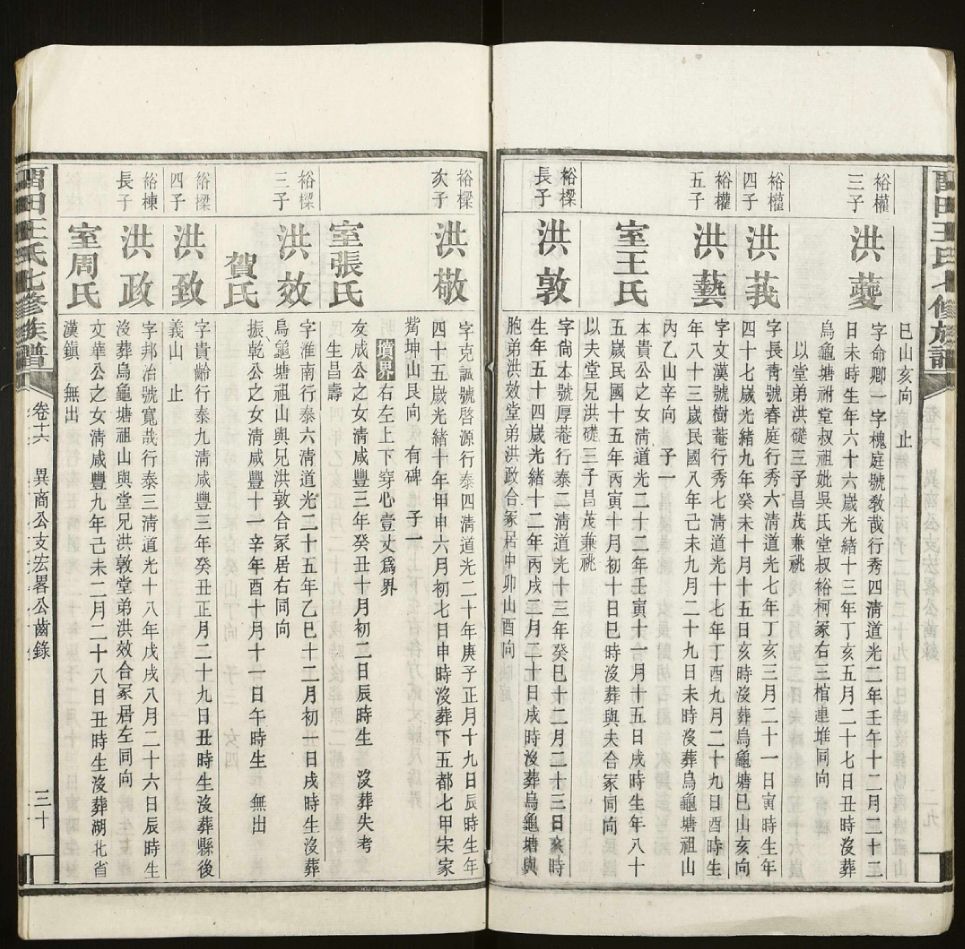 巳山亥向　止
裕權
三子
洪夔
字命卿一字槐庭號教哉行秀四清道光二年壬午十二月二十二
日未時生年六十六歲光緒十三年丁亥五月二十七日丑時沒葬
烏龜塘祔堂叔祖妣吳氏堂叔裕柯冢右三棺連堆同向
以堂弟洪磋三子昌茂兼祧
裕權
四子
洪莪
字長靑號春庭行秀六清道光七年丁亥三月二十一日寅時生年
四十七歲光緒九年癸未十月十五日亥時沒葬烏龜塘巳山亥向
裕權
五子
洪藝
字文漢號樹菴行秀七清道光十七年丁酉九月二十九日酉時生
年八十三歲民國八年己未九月二十九日未時沒葬烏龜塘祖山
內乙山辛向　子一
室王氏
本貴公之女清道光二十二年壬寅十一月十五日戌時生年八十
五歲民國十五年丙寅十月初十日巳時沒葬與夫合冢同向
以夫堂兄洪磋三子昌茂兼祧
裕樑
長子
洪敦
字尙本號厚菴行泰二清道光十三年癸巳十二月二十三日亥時
生年五十四歲光緒十二年丙戌二月二十日戌時沒葬烏龜塘與
胞弟洪效堂弟洪政合冢居中卯山酉向
裕樑
次子
洪敬
字克諴號啓源行泰四清道光二十年庚子正月十九日辰時生年
四十五歲光緒十年甲申六月初七日申時沒葬下五都七甲宋家
觜坤山艮向　有碑　子一
墳界右左上下穿心壹丈爲界
室張氏
友成公之女清咸豐三年癸丑十月初二日辰時生　沒葬失考
生昌壽
裕樑
三子
洪效
字淮南行泰六清道光二十五年乙巳十二月初一日戌時生沒葬
烏龜塘祖山與兄洪敦合冢居右同向
賀氏
振乾公之女清咸豐十一辛年酉十月十一日午時生　無出
裕樑
四子
洪致
字貴齡行泰九清咸豐三年癸丑正月二十九日丑時生沒葬縣後
義山　止
裕棟
長子
洪政
字邦治號寬哉行泰三清道光十八年戊戌八月二十六日辰時生
沒葬烏龜塘祖山與堂兄洪敦堂弟洪效合冢居左同向
室周氏
文華公之女清咸豐九年己未二月二十八日丑時生沒葬湖北省
漢鎭　無出
田王氏七修族譜
卷十六　異商公支宏畧公齒錄
三十